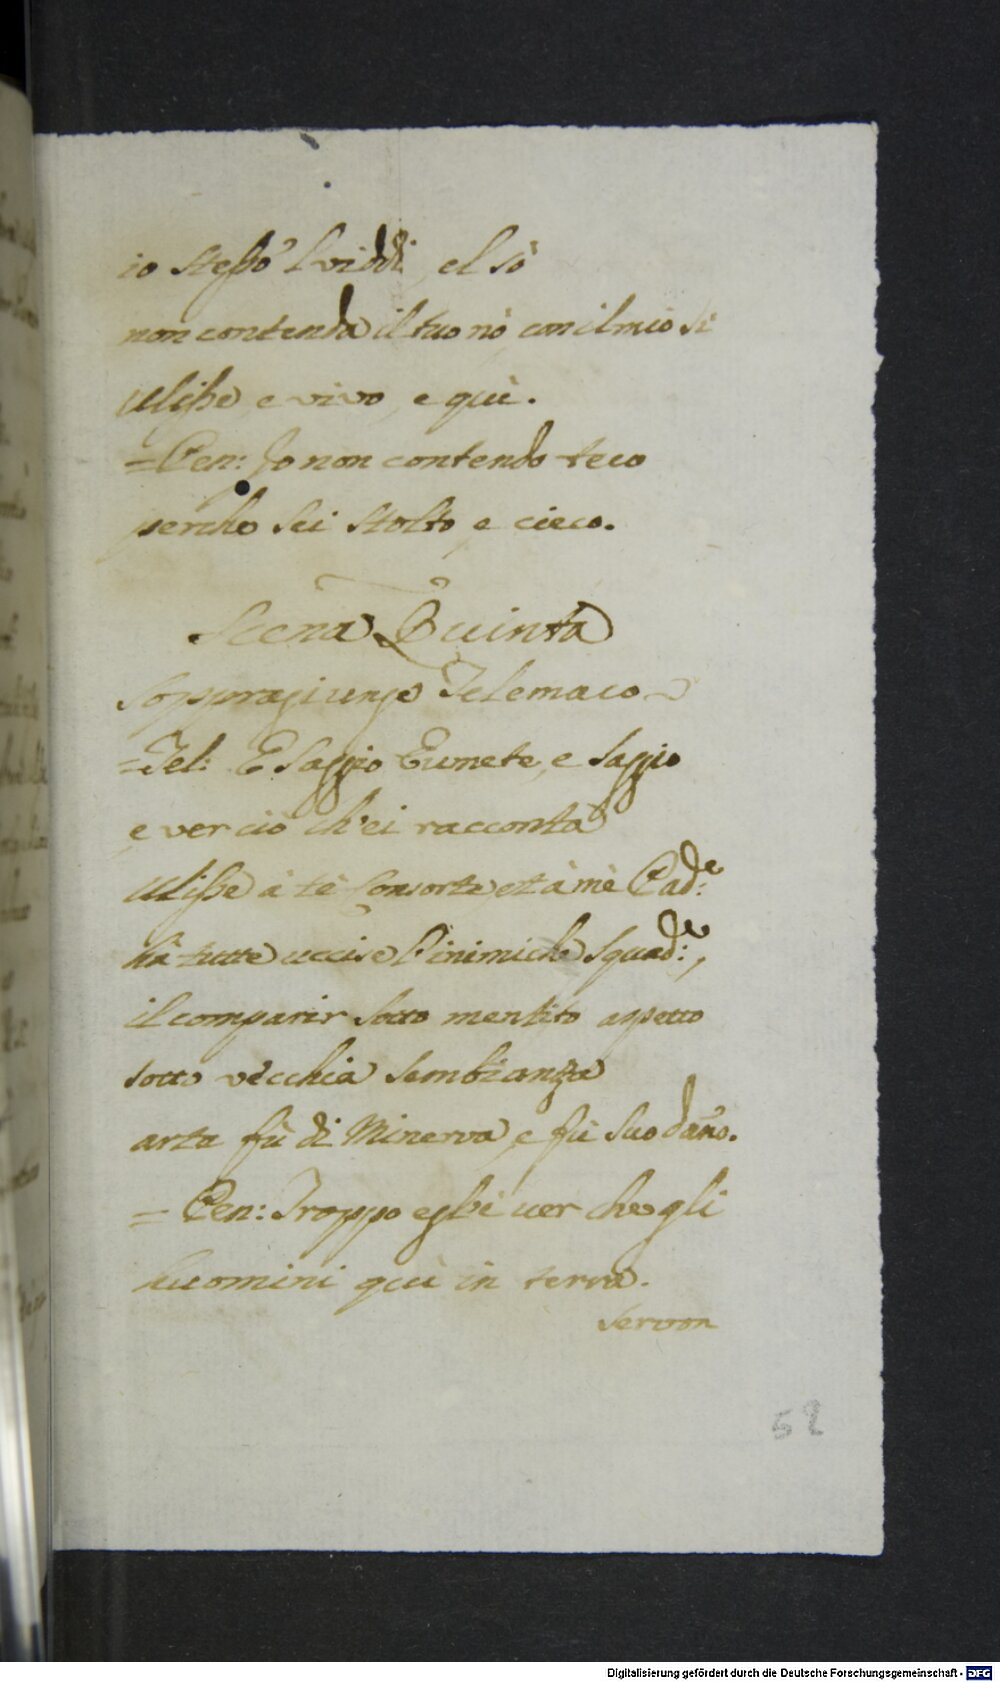 io stesso l viddi, el sò
non contenda il tuo nò, con il mio sì
Ulisse, e vivo, e quì.
=Pen: Io non contendo teco
perche sei stolto, e cieco.
Scena Quinta
Soppragiunge Telemaco
=Tel: E Saggio Eumete, e saggio
e ver ciò ch'ei racconta
Ulisse à tè Consorte, et à mè Pad:e
hà tutte uccise l'inimiche squad:e,
il comparir sotto mentito aspetto
sotto vecchia sembianza
arte fù di Minerva, e fù suo dãno.
= Pen: Troppo egl'è ver che gli
huomini quì in terra.
servon
52
Digitalisierung gefördert durch die Deutsche Forschungsgemeinschaft - DFG